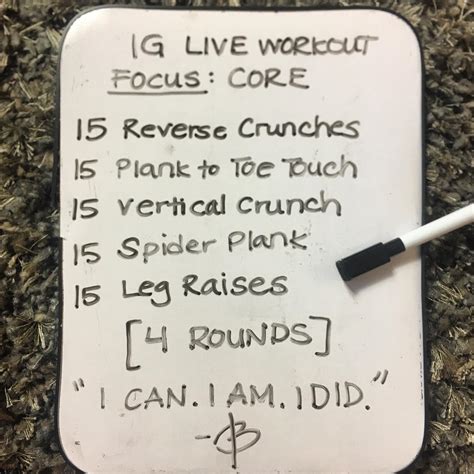 IG LIVE WORKOUT
FOCUS: CORE
15 Reverse Crunches
15 Plank to Toe Touch
15 Vertical Crunch
15 Spider Plank
15 Leg Raises
[4 ROUNDS]
"I CAN. I AM. I DID."
-B